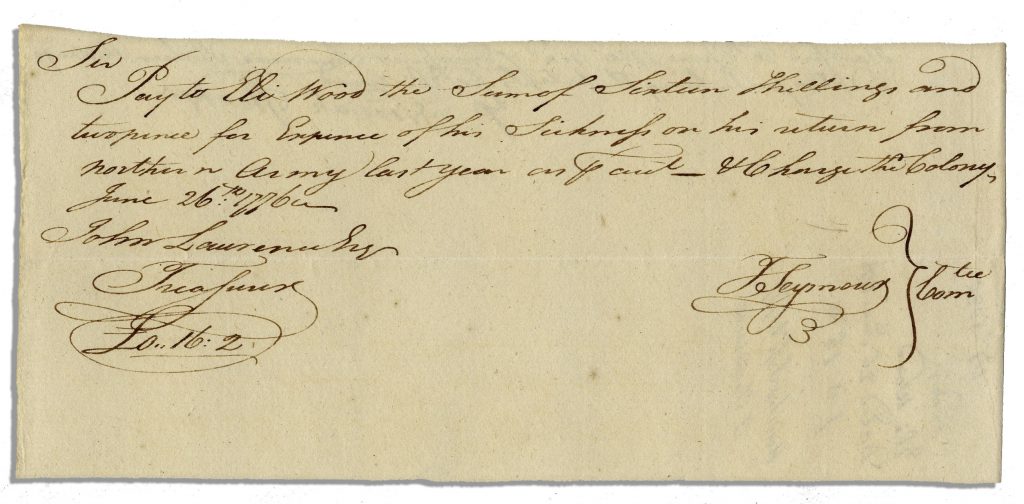 Sir
Pay to Eli Wood the Sum of Sixteen Shillings and
twopence for Expence of his Sickness on his return from
northern Army last year as ⅌ acct — & Charge the Colony
June 26th. 1776
John Lawrence Esq
Treasurer
£0.. 16: 2.
T Seymour } Comtee